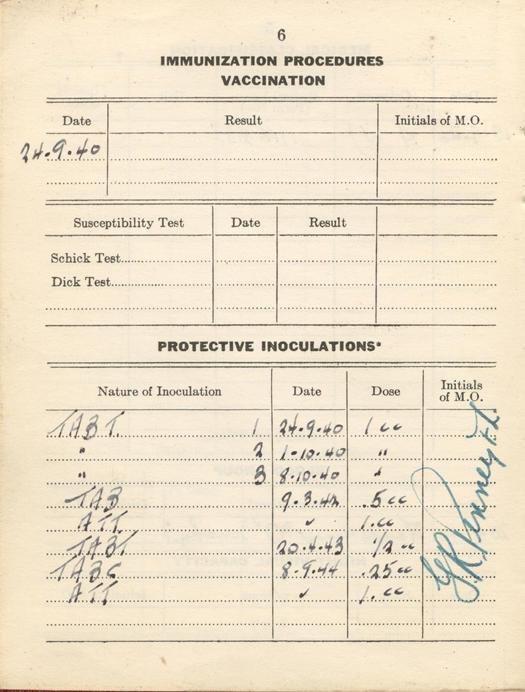 6
IMMUNIZATION PROCEDURES
VACCINATION
Date Result Initials of M.O.
24.9.40
Susceptibility Test Date Result
Schick Test
Dick Test
PROTECTIVE INOCULATIONS*
Nature of Inoculation Date Dose Initials of M.O.
TABT. 1 24.9.40 1 cc
" 2 1.10.40 "
" 3 8.10.40 "
TAB 9.3.42 .5 cc
ATT. " 1.cc
TABT 20.4.43 1/2 cc
TABC 8.9.44 .25 cc
ATT " 1.cc